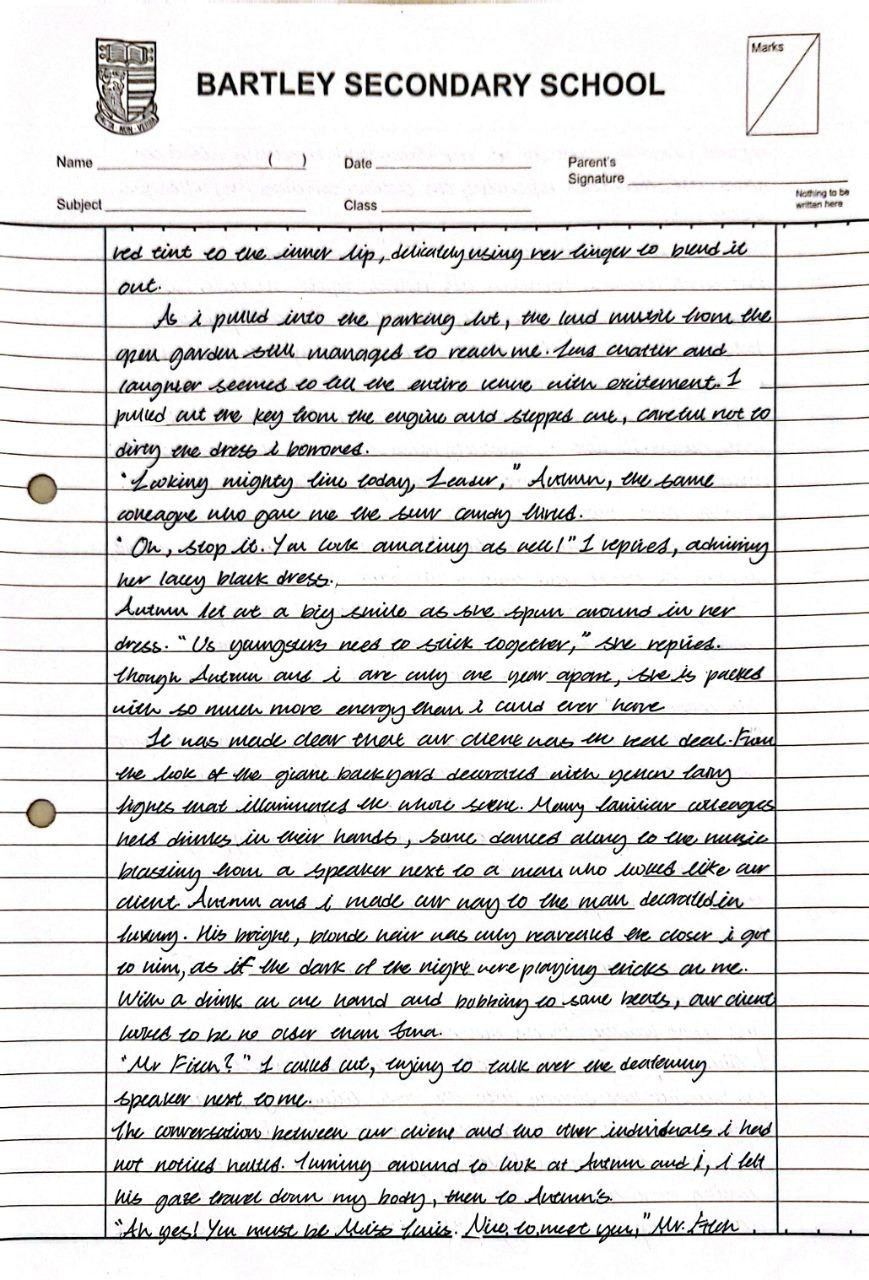 BARTLEY SECONDARY SCHOOL
Marks
Name ( ) Date Parent's
Signature
Subject Class
Nothing to be
written here
red tint to the inner lip, delicately using her finger to blend it
out.
As i pulled into the parking lot, the loud music from the
open garden still managed to reach me. Loud chatter and
laughter seemed to fill the entire venue with excitement. I
pulled out the key from the engine and stepped out, careful not to
dirty the dress i borrowed.
"Looking mighty fine today, Leader," Autumn, the same
colleague who gave me the sour candy
"Oh, stop it. You look amazing as well!" I replied, admiring
her lacey black dress.
Autumn let out a big smile as she spun around in her
dress. "Us youngsters need to stick together," she replied.
Though Autumn and i are only one year apart, she is packed
with so much more energy than i could ever have
It was made clear that our client was the real deal. From
the look of the giant backyard decorated with yellow fairy
lights that illuminated the whole scene. Many familiar colleagues
held drinks in their hands, some danced along to the music
blasting from a speaker next to a man who looked like our
client. Autumn and i made our way to the man decorated in
luxury. His bright, blonde hair was only revealed the closer i got
to him, as if the dark of the night were playing tricks on me.
With a drink on one hand and bobbing to some beats, our client
looked to be no older than
"Mr Fitch?" I called out, trying to talk over the deafening
speaker next to me.
The conversation between our client and two other individuals i had
not noticed halted. Turning around to look at Autumn and i, i felt
his gaze travel down my body, then to Autumn's.
"Ah yes! You must be Miss Nice to meet you," Mr. Fitch